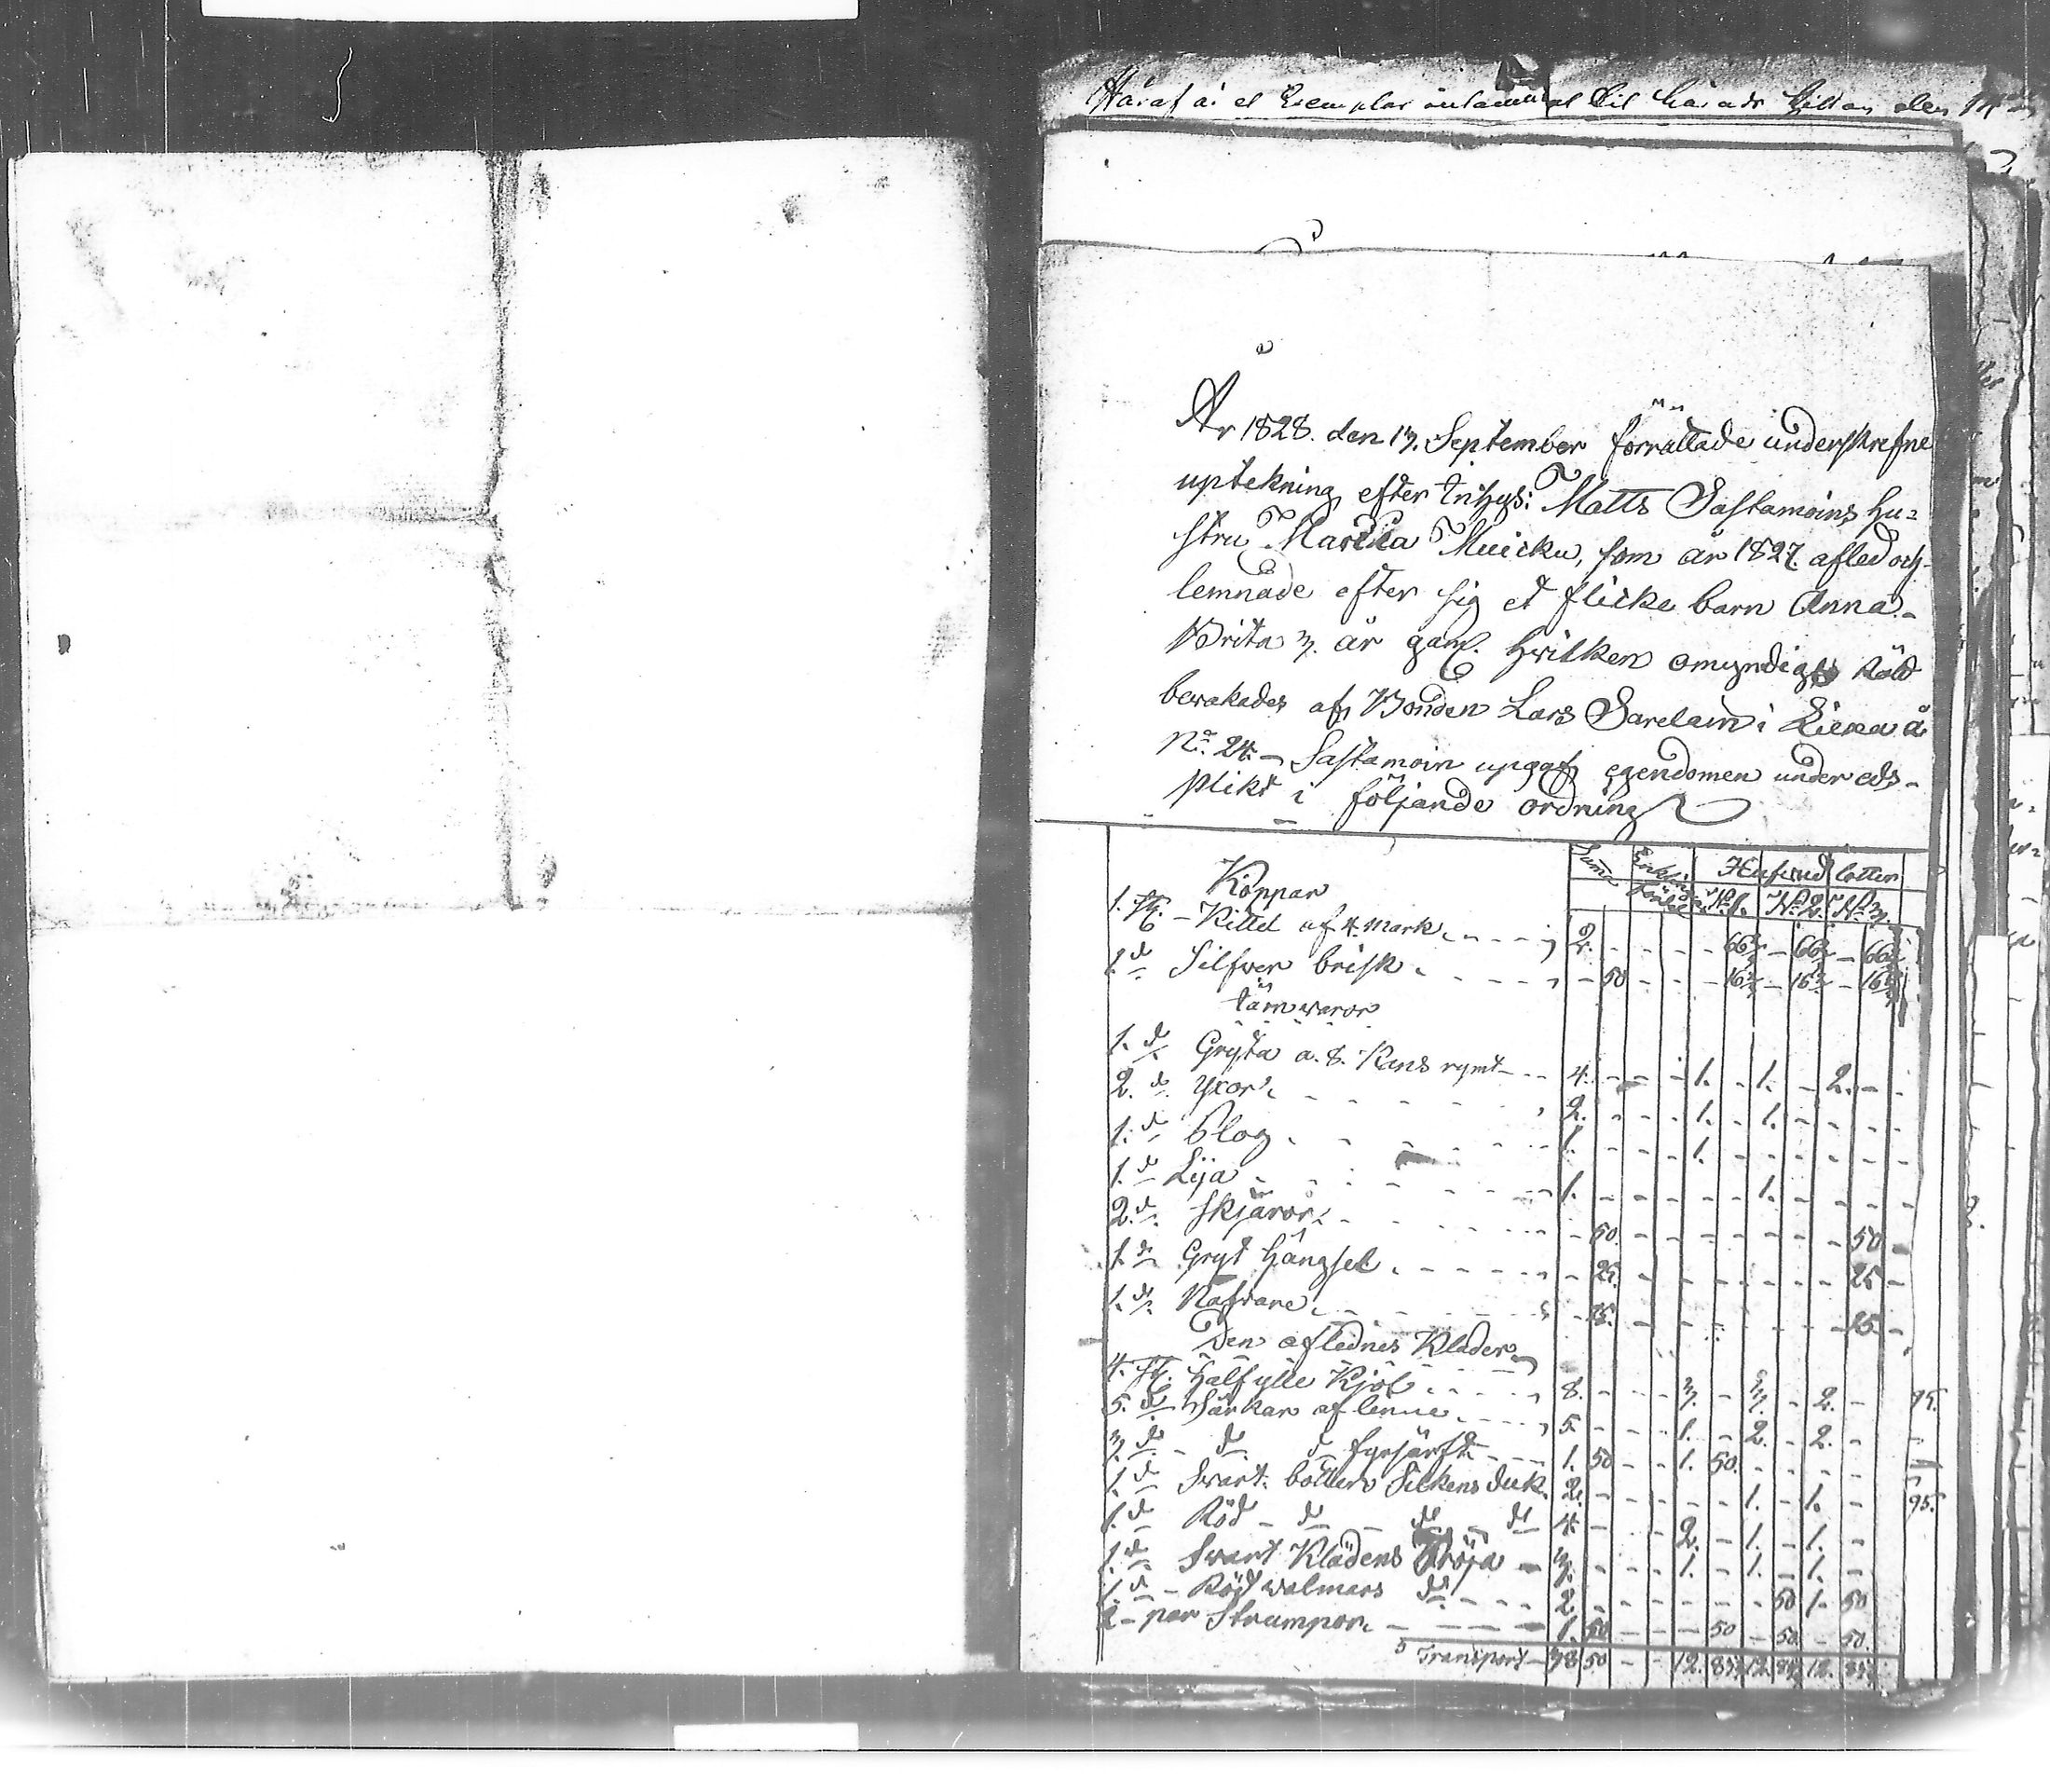 Häraf är et Exemplar inlämnat til härads Kistan den
År 1828. den 13. September förrättade underskrefne
uptekning efter Inhys: Matts Sastamoins hu-
stru Maria Muicku, som år 1827. afled och
lemnade efter sig et flicke barn Anna-
Brita 3. år gam. hvilken omyndigs rätt
bevakades af Bonden Lars Sarelain i Liexa å
No. 24. – Sastamoin upgaf egendomen under eds-
plikt i följande ordning
Summa Hufvud lotter
No 1. No 2. No 3.
Koppar
1. st. – Kittel af 4. mark 2. - - 66 2/3 - 66 2/3 - 66 2/3
1. do Silfver brisk - 50 - - 16 2/3 - 16 2/3 - 16 2/3
Järn waror
1. do Gryta a. 8. Kans rymt 4. - - 1. - 1. - 2. -
2. do yxor 2. - - 1. - 1. - -
1. do Plog 1. - - 1. - -
1. do Lija 1. - - - 1. - -
2. do skjäror - 50. - - - 50 -
1. do Gryt hängsel - 25. - - - 25 -
1. do Nafvare - 25. - - - 25 -
Den aflednes Kläder
4. st. halfylle Kjol 8. - - 3. - 3. - 2. - 95.
5. do Särkar af lenne 5. - - 1. - 2. - 2. -
3. do do do 1. 50 - - 1. 50. - -
1. do Svart botten Silkens duk 2. - - - 1. - 1. - 95.
1. do Röd do do do 4. - - 2. - 1. - 1. -
1. do Svart Klädens Tröja 3. - - 1. - 1. - 1. -
1. do – Röd walmars do 2. - - - 50 1. 50
2 – par Strumpor 1. 50 - - 50 - 50. - 50.
Transport – 38 50 - - 12. 83 1/3 12. 83 1/3 12. 83 1/3